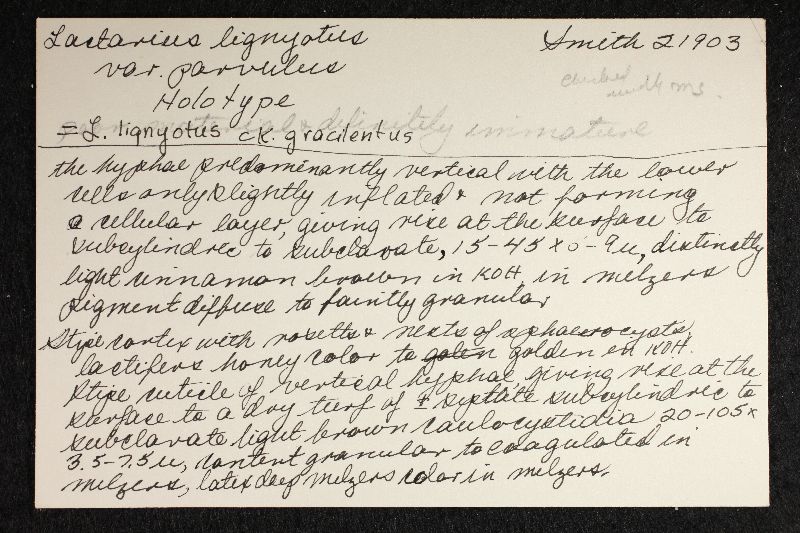 Lactarius lignyotus Smith 21903
var. parvulus
Holotype checked
with ms.
material definitely immature
= L. lignyotus ck. gracilentus
the hyphae predominantly vertical with the lower
cells only slightly inflated & not forming
a cellular layer, giving rise at the surface to
subcylindric to subclavate, 15-45 x 5-9u, distinctly
light cinnamon brown in KOH, in melzers
pigment diffuse to faintly granular
Stipe cortex with rosetts & nests of sphaerocysts,
lactifers honey color to golden en KOH.
Stipe cuticle of vertical hyphae giving rise at the
surface to a dry turf of ± septate subcylindric to
subclavate light brown caulocystidia 20-105x
3.5-7.5u, content granular to coagulated in
melzers, latex deep melzers color in melzers.